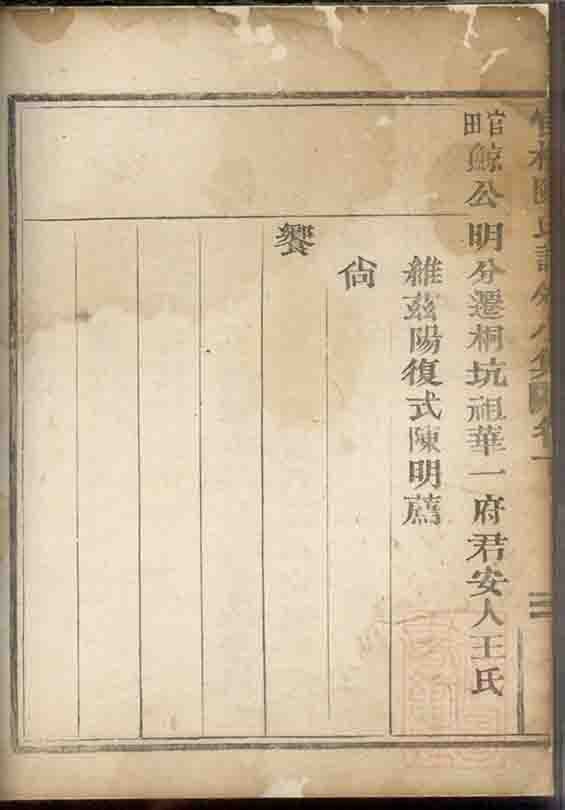 官田鯨公明分遷桐坑祖華一府君安人王氏
維茲陽復式陳明薦
尙
饗